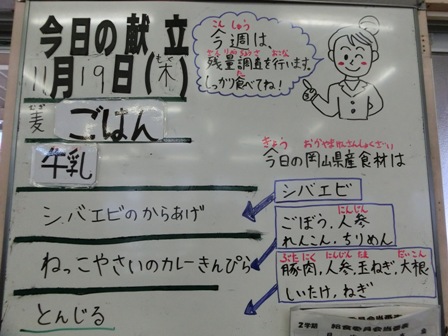 今日の献立
11月19日(木)
もく
むぎ
麦ごはん
牛乳
シバエビのからあげ
ねっこやさいのカレーきんぴら
とんじる
こんしゅう
今週は、
ざんりょうちょうさ おこな
残量調査を行います。
た
しっかり食べてね!
きょう おかやまけんさんしょくざい
今日の岡山県産食材は
シバエビ
にんじん
ごぼう、人参
れんこん、ちりめん
ぶたにく にんじん たま だいこん
豚肉、人参、玉ねぎ、大根
しいたけ、ねぎ
2学期